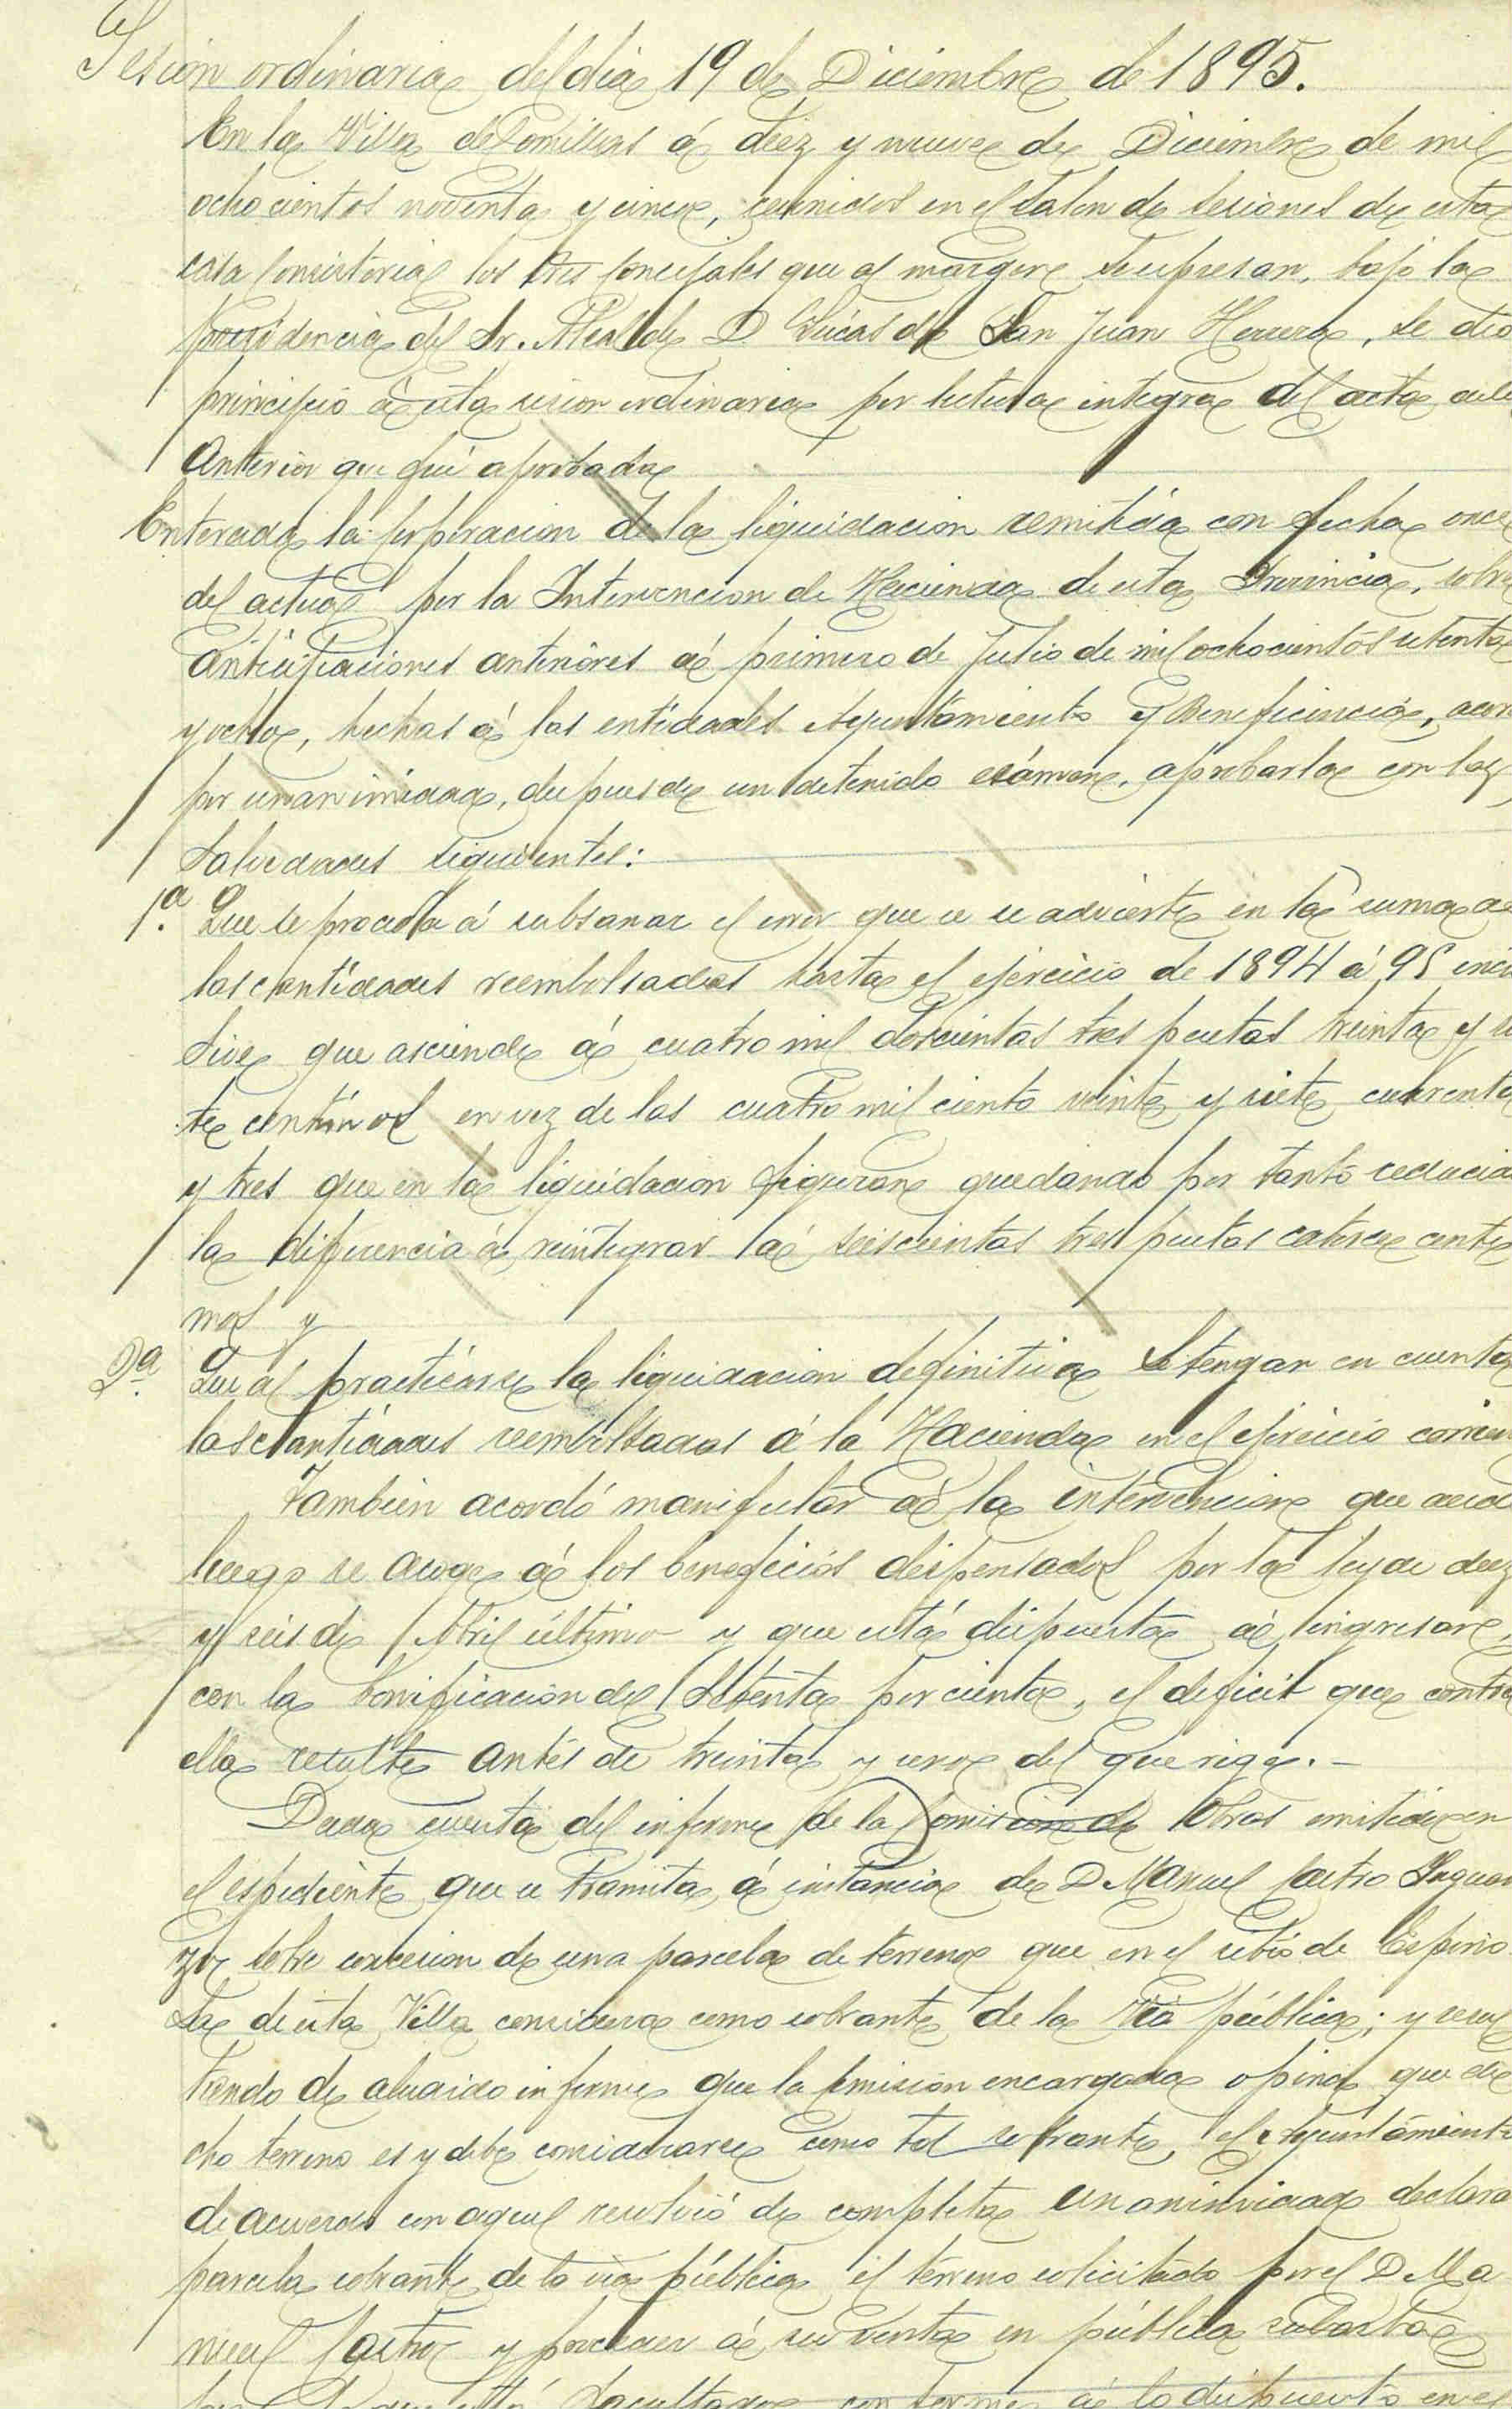 Sesion ordinaria del dia 19 de Diciembre de 1895.
En la Villa de Comillas á diez y nueve de Diciembre de mil
ochocientos noventa y cinco, reunidos en el Salon de sesiones de esta
casa Consistorial los Sres Concejales que al margen se expresan, bajo la
presidencia del Sr. Alcalde D Lucas de San Juan Herrera, se dió
principio á esta sesion ordinaria por lectura integra del acta de la
anterior que fué aprobada
Enterada la Corporacion de la liquidacion remitida con fecha once
del actual por la Intervencion de Hacienda de esta Provincia, sobre
anticipaciones anteriores á primero de Julio de mil ochocientos setenta
y ocho, hechas á las entidades Ayuntamiento y Beneficencia, acor
por unanimidad, despues de un detenido exámen, aprobarla con las
salvedades siguientes:
1.ª Que se proceda á subsanar el error que se advierte en la suma de
las cantidades reembolsadas hasta el ejercicio de 1894 á 95 inclu
sive que asciende á cuatro mil doscientas tres pesetas treinta y sie
te centimos en vez de las cuatro mil ciento veinte y siete cuarenta
y tres que en la liquidacion figuran quedando por tanto reducida
la diferencia á reintegrar á seiscientas tres pesetas catorce centi
mos y
2.ª Que al practicarse la liquidacion definitiva se tengan en cuenta
las cantidades reembolsadas á la Hacienda en el ejercicio corrien
Tambien acordó manifestar á la intervencion que desde
luego se acoge á los beneficios dispensados por la ley de diez
y seis de Abril último y que está dispuesta á ingresar,
con la bonificacion del setenta por ciento, el deficit que contra
ella resulte antes de treinta y uno del que rige.—
Dada cuenta del informe de la Comision de Obras emitido en
el espediente que se tramita á instancia de D Manuel Castro Inguan
zo sobre concesion de una parcela de terreno que en el sitio de Espino
sa de esta Villa considera como sobrante de la via pública; y resul
tando de aludido informe que la Comision encargada opina que di
cho terreno es y debe considerarse como tal sobrante, el Ayuntamiento
de acuerdo con aquel resolvió de completa unanimidad declara
parcela sobrante de la via pública el terreno solicitado por el D Ma
nuel Castro y proceder á su venta en pública subasta
facultado conforme á lo dispuesto en el